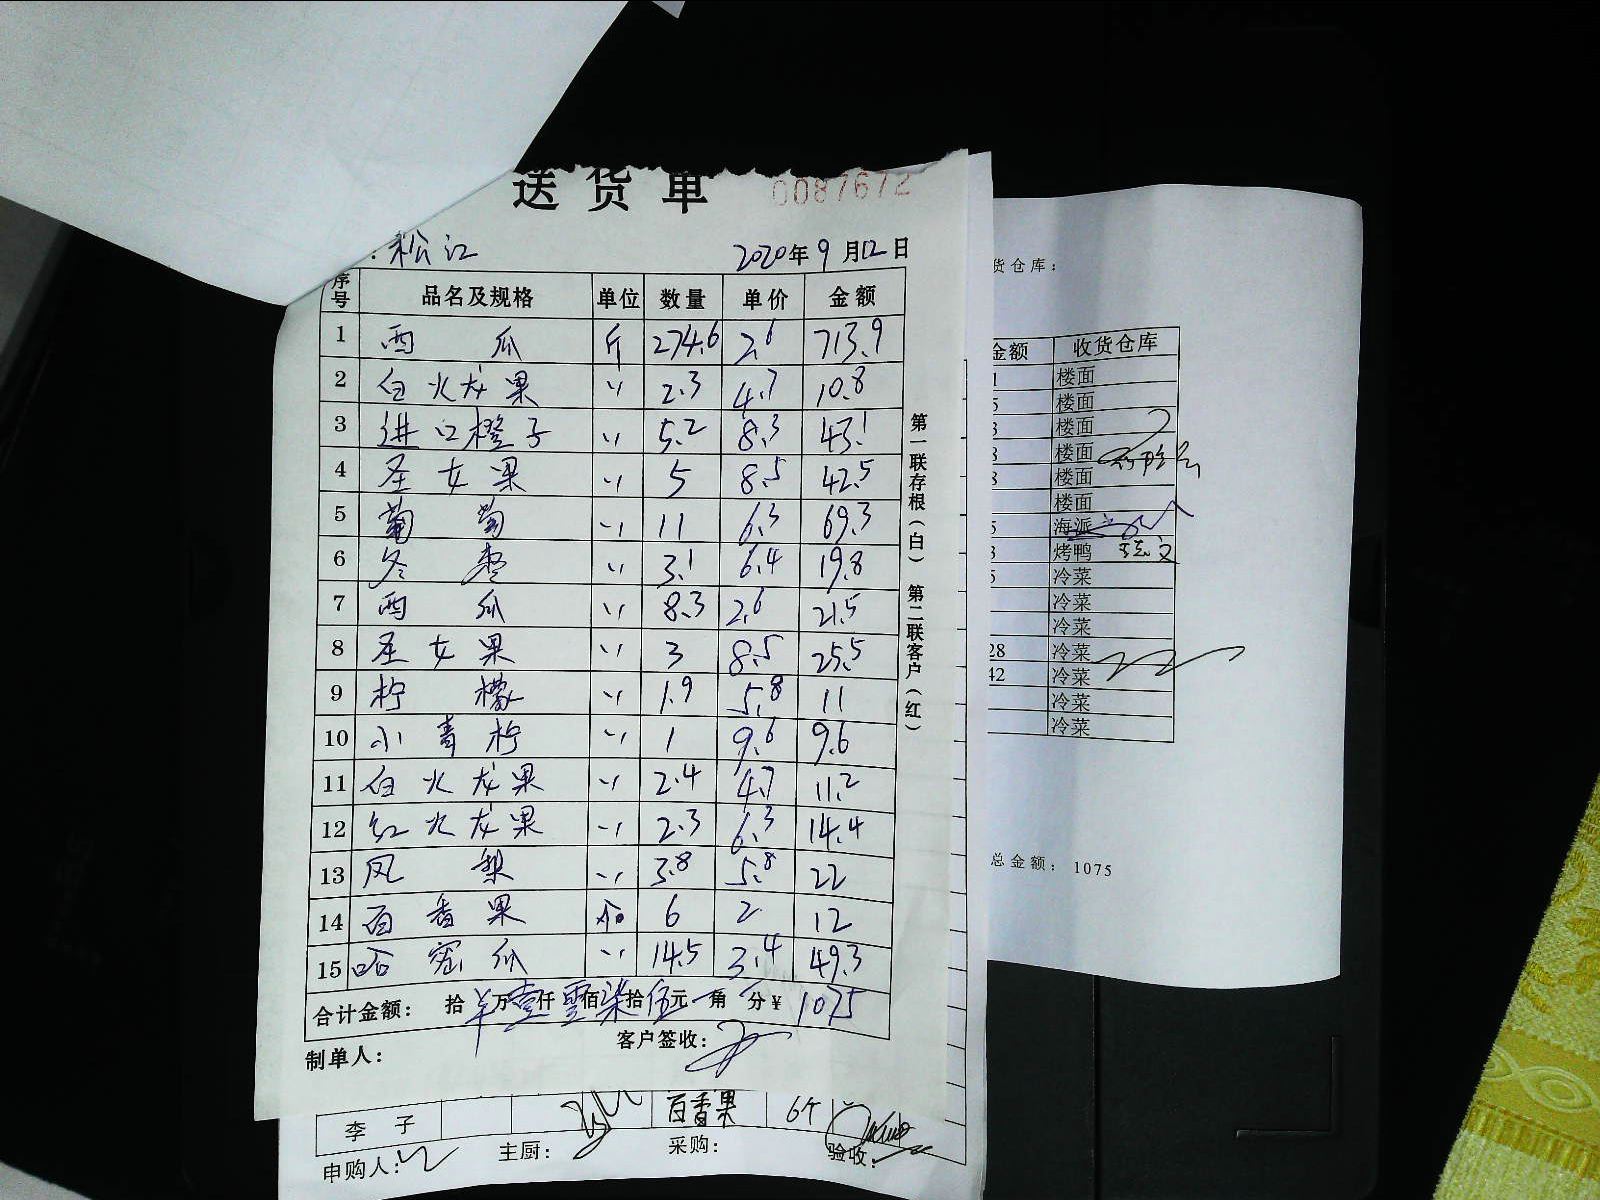 送货单 0087672
:松江 2020年9月12日
序号 品名及规格 单位 数量 单价 金额
1 西瓜 斤 274.6 2.6 713.9
2 白火龙果 〃 2.3 4.7 10.8
3 进口橙子 〃 5.2 8.3 43.1
4 圣女果 〃 5 8.5 42.5
5 葡萄 〃 11 6.3 69.3
6 冬枣 〃 3.1 6.4 19.8
7 西瓜 〃 8.3 2.6 21.5
8 圣女果 〃 3 8.5 25.5
9 柠檬 〃 1.9 5.8 11
10 小青柠 〃 1 9.6 9.6
11 白火龙果 〃 2.4 4.7 11.2
12 红火龙果 〃 2.3 6.3 14.4
13 凤梨 〃 3.8 5.8 22
14 百香果 个 6 2 12
15 哈密瓜 〃 14.5 3.4 49.3
合计金额: 拾万壹仟零佰柒拾伍元角分¥ 1075
制单人: 客户签收:
第一联存根(白) 第二联客户(红)
李子 百香果 6个
申购人: 主厨: 采购: 验收:
货仓库:
金额 收货仓库
1 楼面
5 楼面
3 楼面
8 楼面
8 楼面
楼面
5 海派
3 烤鸭
5 冷菜
冷菜
冷菜
28 冷菜
42 冷菜
冷菜
冷菜
总金额: 1075